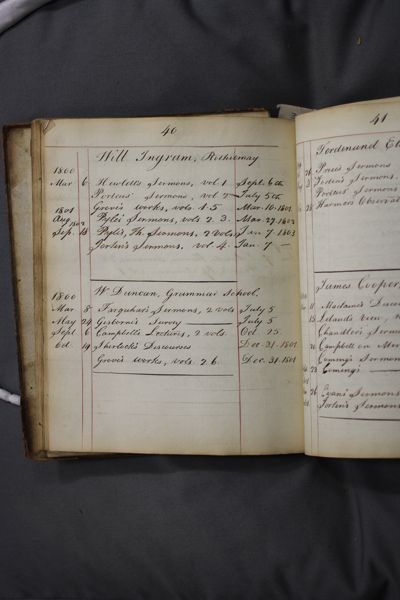 40
Will Ingram, Rothiemay
1800
Mar 6 Hewlett's Sermons, vol 1 Sept. 6th
Porteus' Sermons, vol 2 July 5th
1801 Grove's works, vols 1.5 Mar. 10. 1801
Aug 1802 Pyle's Sermons, vols 2. 3. Mar. 27. 1802
Sep. 13 Pyle's, Th. Sermons, 2 vols Jan 7 1803
Jortin's Sermons. vol 4. Jan. 7 —
W Duncan, Grammar School,
1800
Mar 8 Farquhar's Sermons, 2 vols July 5
May 24 Gisborne's Survey — July 5
Sept. 6 Campbell's Lectures, 2 vols. Oct 25
Oct. 14 Sherlock's Discourses Dec. 31. 1801
Grove's works, vols. 2.6. Dec. 31. 1801
41
Ferdinand
26 Price's Sermons
Jortin's Sermons.
Porteus' Sermons
28 Harmer's Observat
James Cooper,
11
13
Chandler's Sermo
Campbell on
Coming's Sermon
23 Coming's —
26 Evans' Sermons
Jortin's Sermons